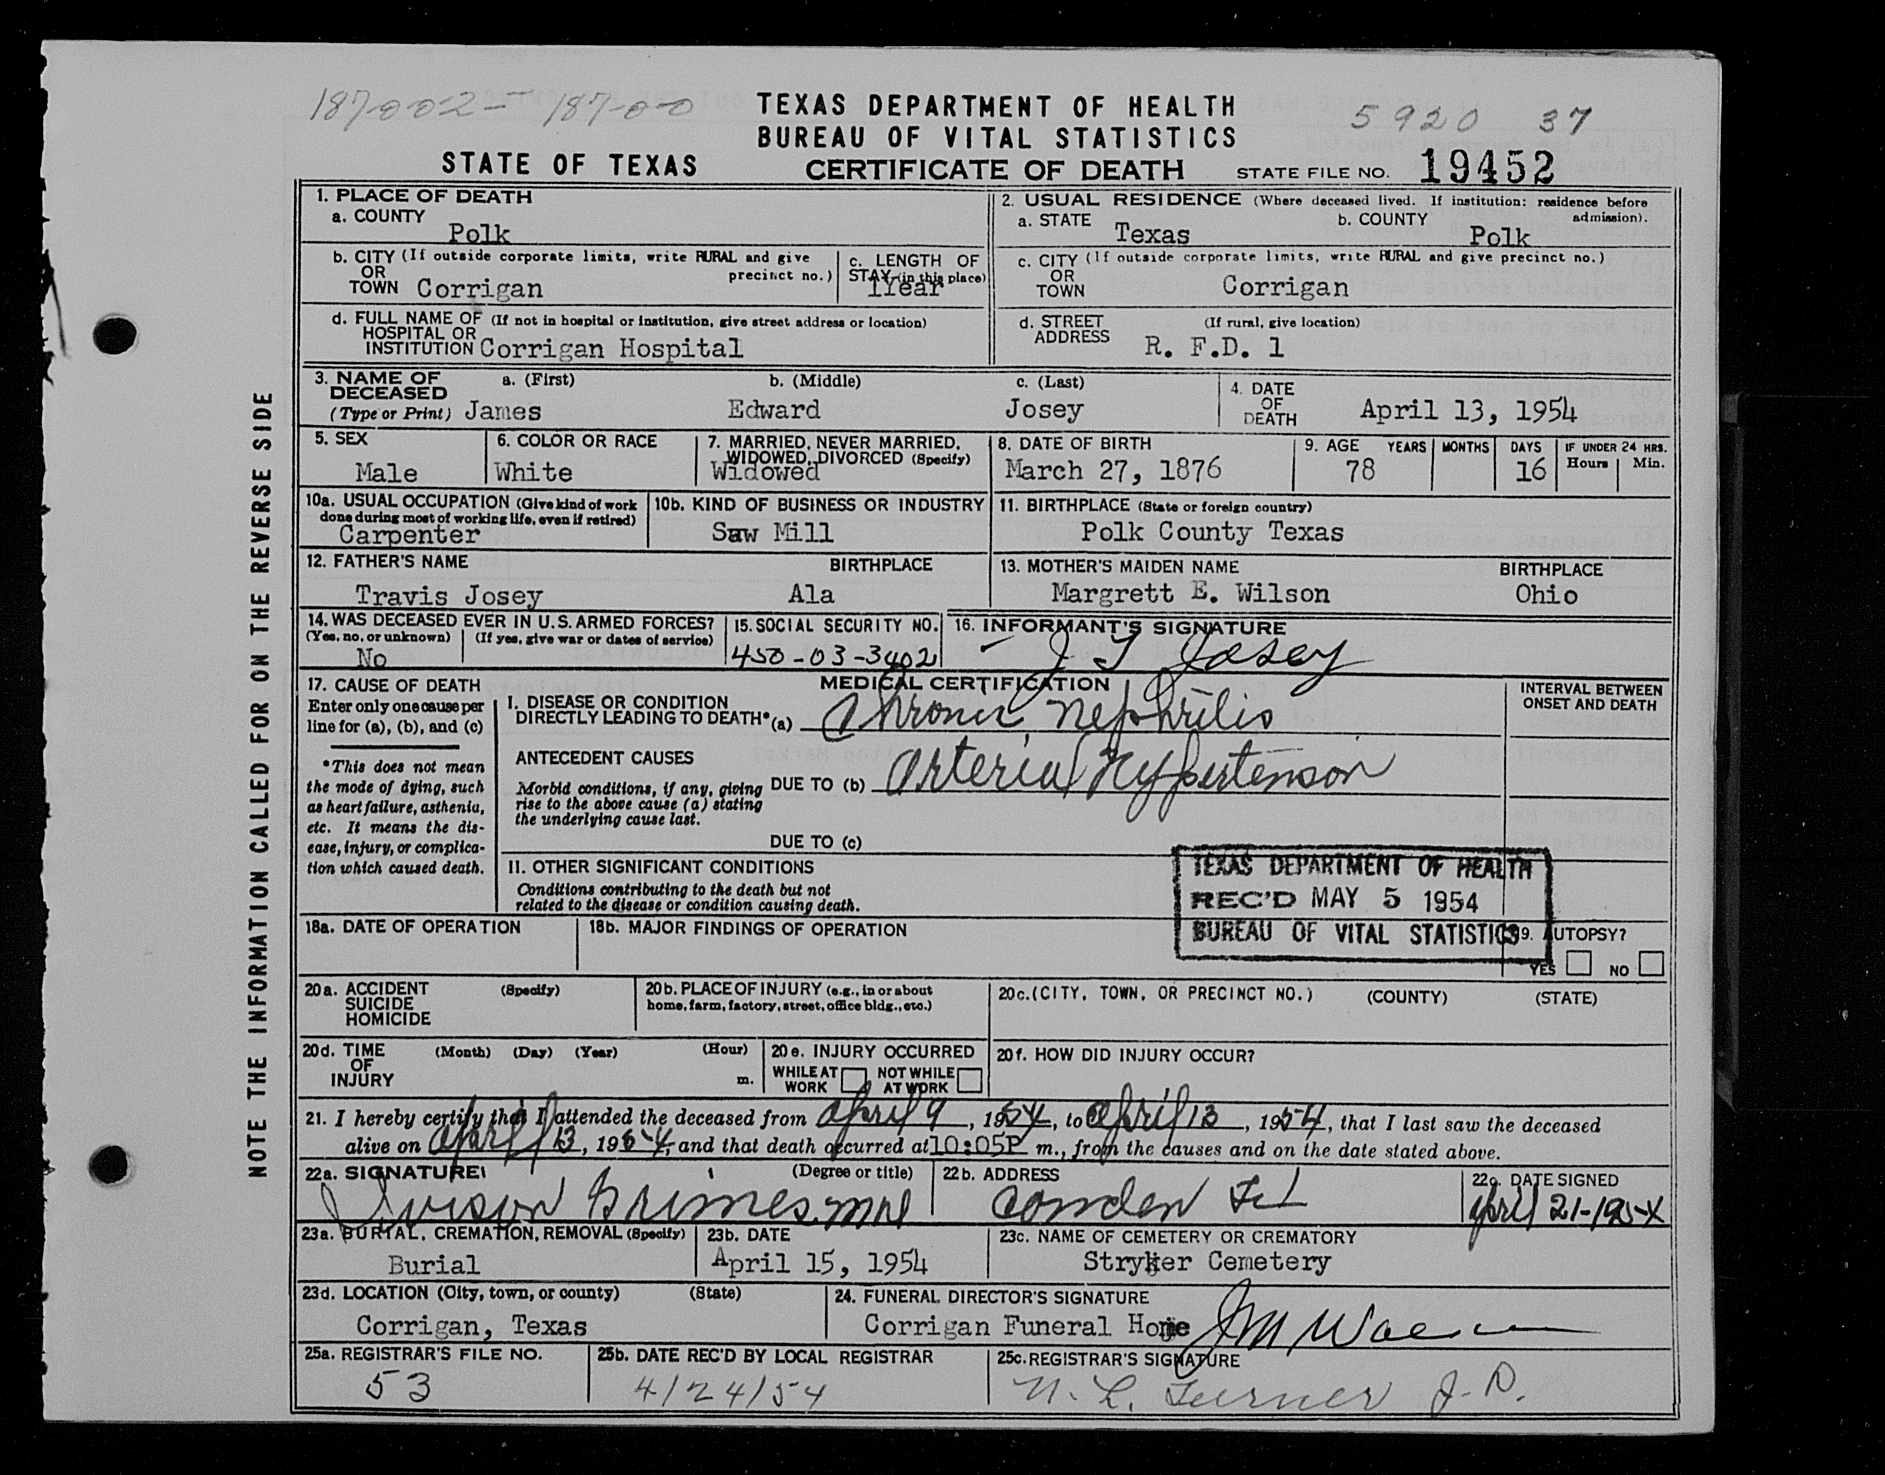 187-002- 187-00
TEXAS DEPARTMENT OF HEALTH
BUREAU OF VITAL STATISTICS
5920 37
STATE OF TEXAS CERTIFICATE OF DEATH STATE FILE NO. 19452
NOTE THE INFORMATION CALLED FOR ON THE REVERSE SIDE
1. PLACE OF DEATH
a. COUNTY
Polk
2. USUAL RESIDENCE (Where deceased lived. If institution: residence before admission).
a. STATE Texas b. COUNTY Polk
b. CITY (If outside corporate limits, write RURAL and give precinct no.)
OR
TOWN Corrigan
c. LENGTH OF
STAY (in this place)
1Year
c. CITY (If outside corporate limits, write RURAL and give precinct no.)
OR
TOWN Corrigan
d. FULL NAME OF (If not in hospital or institution, give street address or location)
HOSPITAL OR
INSTITUTION Corrigan Hospital
d. STREET (If rural, give location)
ADDRESS R. F.D. 1
3. NAME OF DECEASED (Type or Print)
a. (First) James
b. (Middle) Edward
c. (Last) Josey
4. DATE OF DEATH April 13, 1954
5. SEX Male
6. COLOR OR RACE White
7. MARRIED, NEVER MARRIED, WIDOWED, DIVORCED (Specify) Widowed
8. DATE OF BIRTH March 27, 1876
9. AGE YEARS 78 MONTHS DAYS 16 IF UNDER 24 HRS. Hours Min.
10a. USUAL OCCUPATION (Give kind of work done during most of working life, even if retired)
Carpenter
10b. KIND OF BUSINESS OR INDUSTRY
Saw Mill
11. BIRTHPLACE (State or foreign country)
Polk County Texas
12. FATHER'S NAME BIRTHPLACE
Travis Josey Ala
13. MOTHER'S MAIDEN NAME BIRTHPLACE
Margrett E. Wilson Ohio
14. WAS DECEASED EVER IN U.S. ARMED FORCES?
(Yes, no, or unknown) (If yes, give war or dates of service)
No
15. SOCIAL SECURITY NO.
450-03-3402
16. INFORMANT'S SIGNATURE
J T Josey
17. CAUSE OF DEATH
Enter only one cause per
line for (a), (b), and (c)
*This does not mean
the mode of dying, such
as heart failure, asthenia,
etc. It means the dis-
ease, injury, or complica-
tion which caused death.
MEDICAL CERTIFICATION
I. DISEASE OR CONDITION
DIRECTLY LEADING TO DEATH* (a) Chronic Nephritis
INTERVAL BETWEEN
ONSET AND DEATH
ANTECEDENT CAUSES
Morbid conditions, if any, giving
rise to the above cause (a) stating
the underlying cause last.
DUE TO (b) Arterial Hypertenson
DUE TO (c)
II. OTHER SIGNIFICANT CONDITIONS
Conditions contributing to the death but not
related to the disease or condition causing death.
TEXAS DEPARTMENT OF HEALTH
REC'D MAY 5 1954
BUREAU OF VITAL STATISTICS
18a. DATE OF OPERATION
18b. MAJOR FINDINGS OF OPERATION
19. AUTOPSY?
YES NO
20a. ACCIDENT (Specify)
SUICIDE
HOMICIDE
20b. PLACE OF INJURY (e.g., in or about
home, farm, factory, street, office bldg., etc.)
20c. (CITY, TOWN, OR PRECINCT NO.) (COUNTY) (STATE)
20d. TIME OF INJURY (Month) (Day) (Year) (Hour) m.
20e. INJURY OCCURRED
WHILE AT WORK NOT WHILE AT WORK
20f. HOW DID INJURY OCCUR?
21. I hereby certify that I attended the deceased from April 9, 1954, to April 13, 1954, that I last saw the deceased
alive on April 13, 1954, and that death occurred at 10:05P m., from the causes and on the date stated above.
22a. SIGNATURE (Degree or title)
Grimes MD
22b. ADDRESS
Camden
22c. DATE SIGNED
April 21-1954
23a. BURIAL, CREMATION, REMOVAL (Specify)
Burial
23b. DATE
April 15, 1954
23c. NAME OF CEMETERY OR CREMATORY
Stryker Cemetery
23d. LOCATION (City, town, or county) (State)
Corrigan, Texas
24. FUNERAL DIRECTOR'S SIGNATURE
Corrigan Funeral Home J M
25a. REGISTRAR'S FILE NO.
53
25b. DATE REC'D BY LOCAL REGISTRAR
4/24/54
25c. REGISTRAR'S SIGNATURE
N. L. Turner J. P.